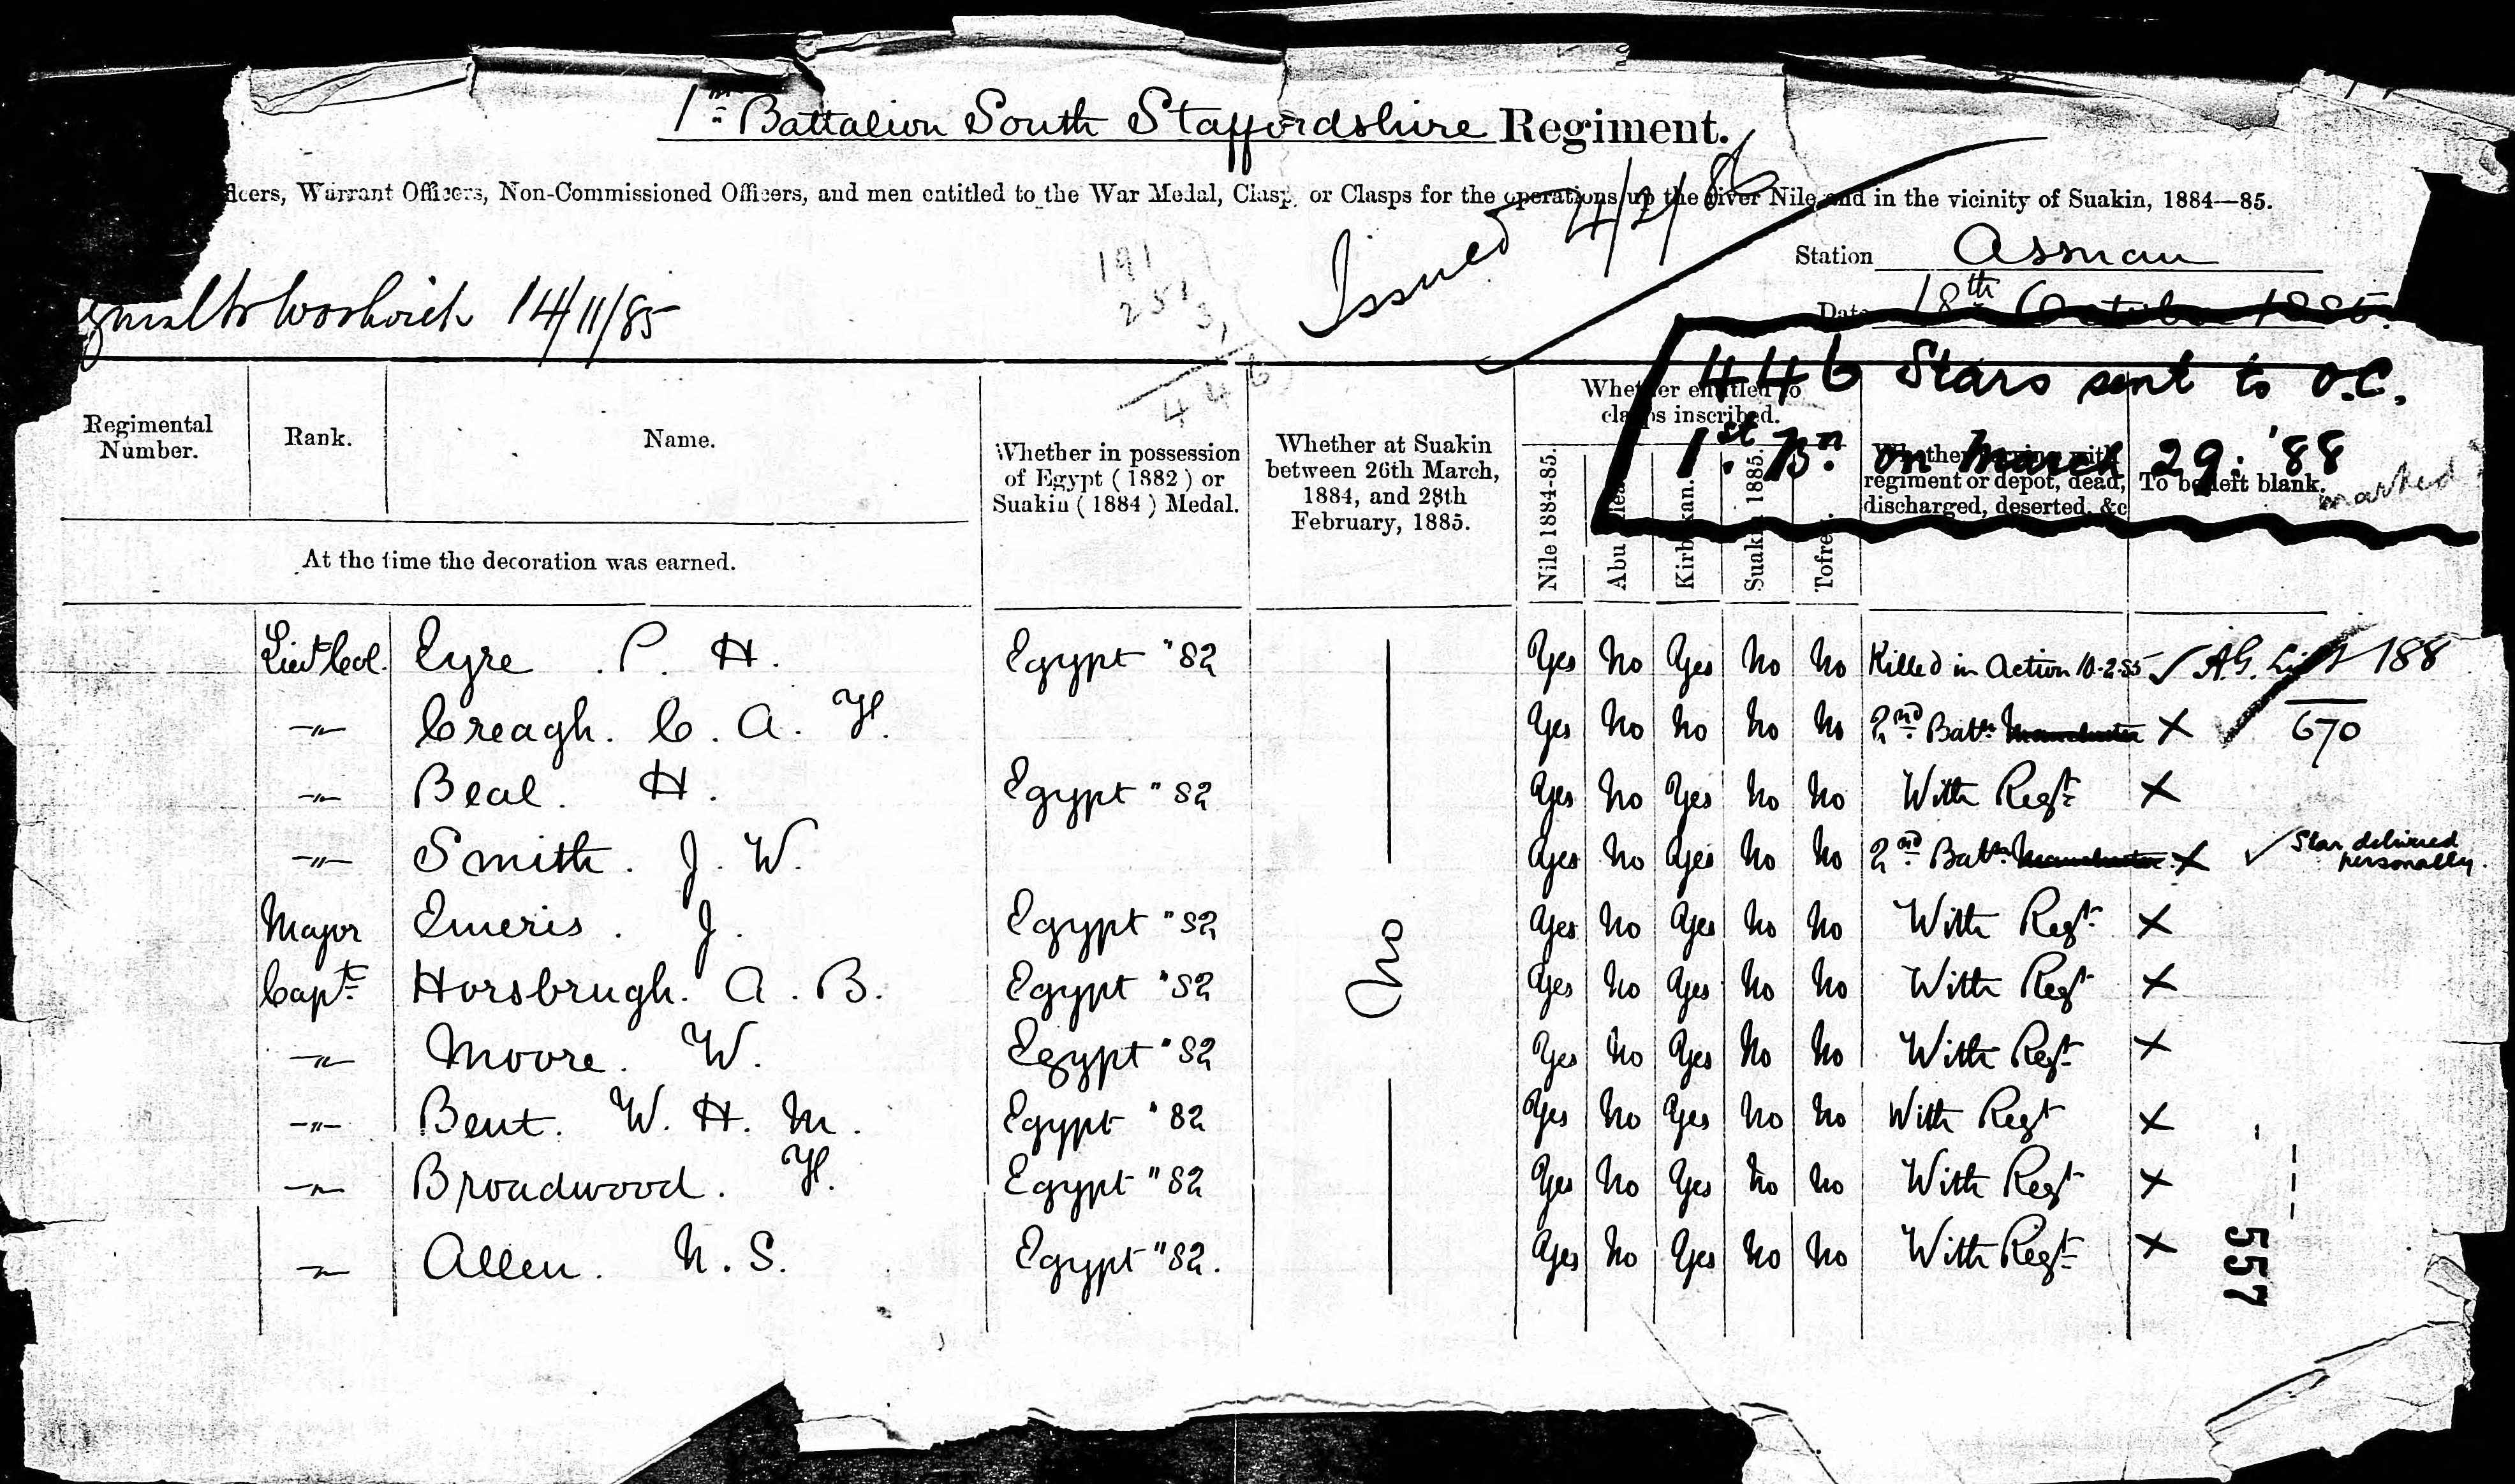 1st Battalion South Staffordshire Regiment.
Officers, Warrant Officers, Non-Commissioned Officers, and men entitled to the War Medal, Clasp, or Clasps for the operations up the river Nile and in the vicinity of Suakin, 1884—85.
Issued 4/2/86
Station Assuan
Date 18th October 1885.
Woolwich 14/11/85
191
251
446
446 Stars sent to O.C.
1st Bn on March 29. '88
marked
Regimental Number.
Rank.
Name.
Whether in possession of Egypt (1882) or Suakin (1884) Medal.
Whether at Suakin between 26th March, 1884, and 28th February, 1885.
Whether entitled to clasps inscribed.
Nile 1884-85.
Abu Klea
Kirbekan.
Suakin 1885.
Tofrek
Whether serving with regiment or depot, dead, discharged, deserted, &c
To be left blank.
At the time the decoration was earned.
Lieut Col. Eyre . P. H. Egypt "82 Yes No Yes No No Killed in Action 10-2-85 ✓ A.G. List 188
-"- Creagh. C. A. H. Yes No No No No 2nd Batn Manchester X ✓ 670
-"- Beal. H. Egypt "82 Yes No Yes No No With Regt X
-"- Smith. J. W. Yes No Yes No No 2nd Batn Manchester X ✓ Star delivered personally.
Major Emeris. J. Egypt "82 No Yes No Yes No No With Regt X
Capt Horsbrugh. A. B. Egypt "82 Yes No Yes No No With Regt X
-"- Moore. W. Egypt "82 Yes No Yes No No With Regt X
-"- Bent. W. H. M. Egypt "82 Yes No Yes No No With Regt X
-"- Broadwood. H. Egypt "82 Yes No Yes No No With Regt X
-"- Allen. N. S. Egypt "82. Yes No Yes No No With Regt X
557